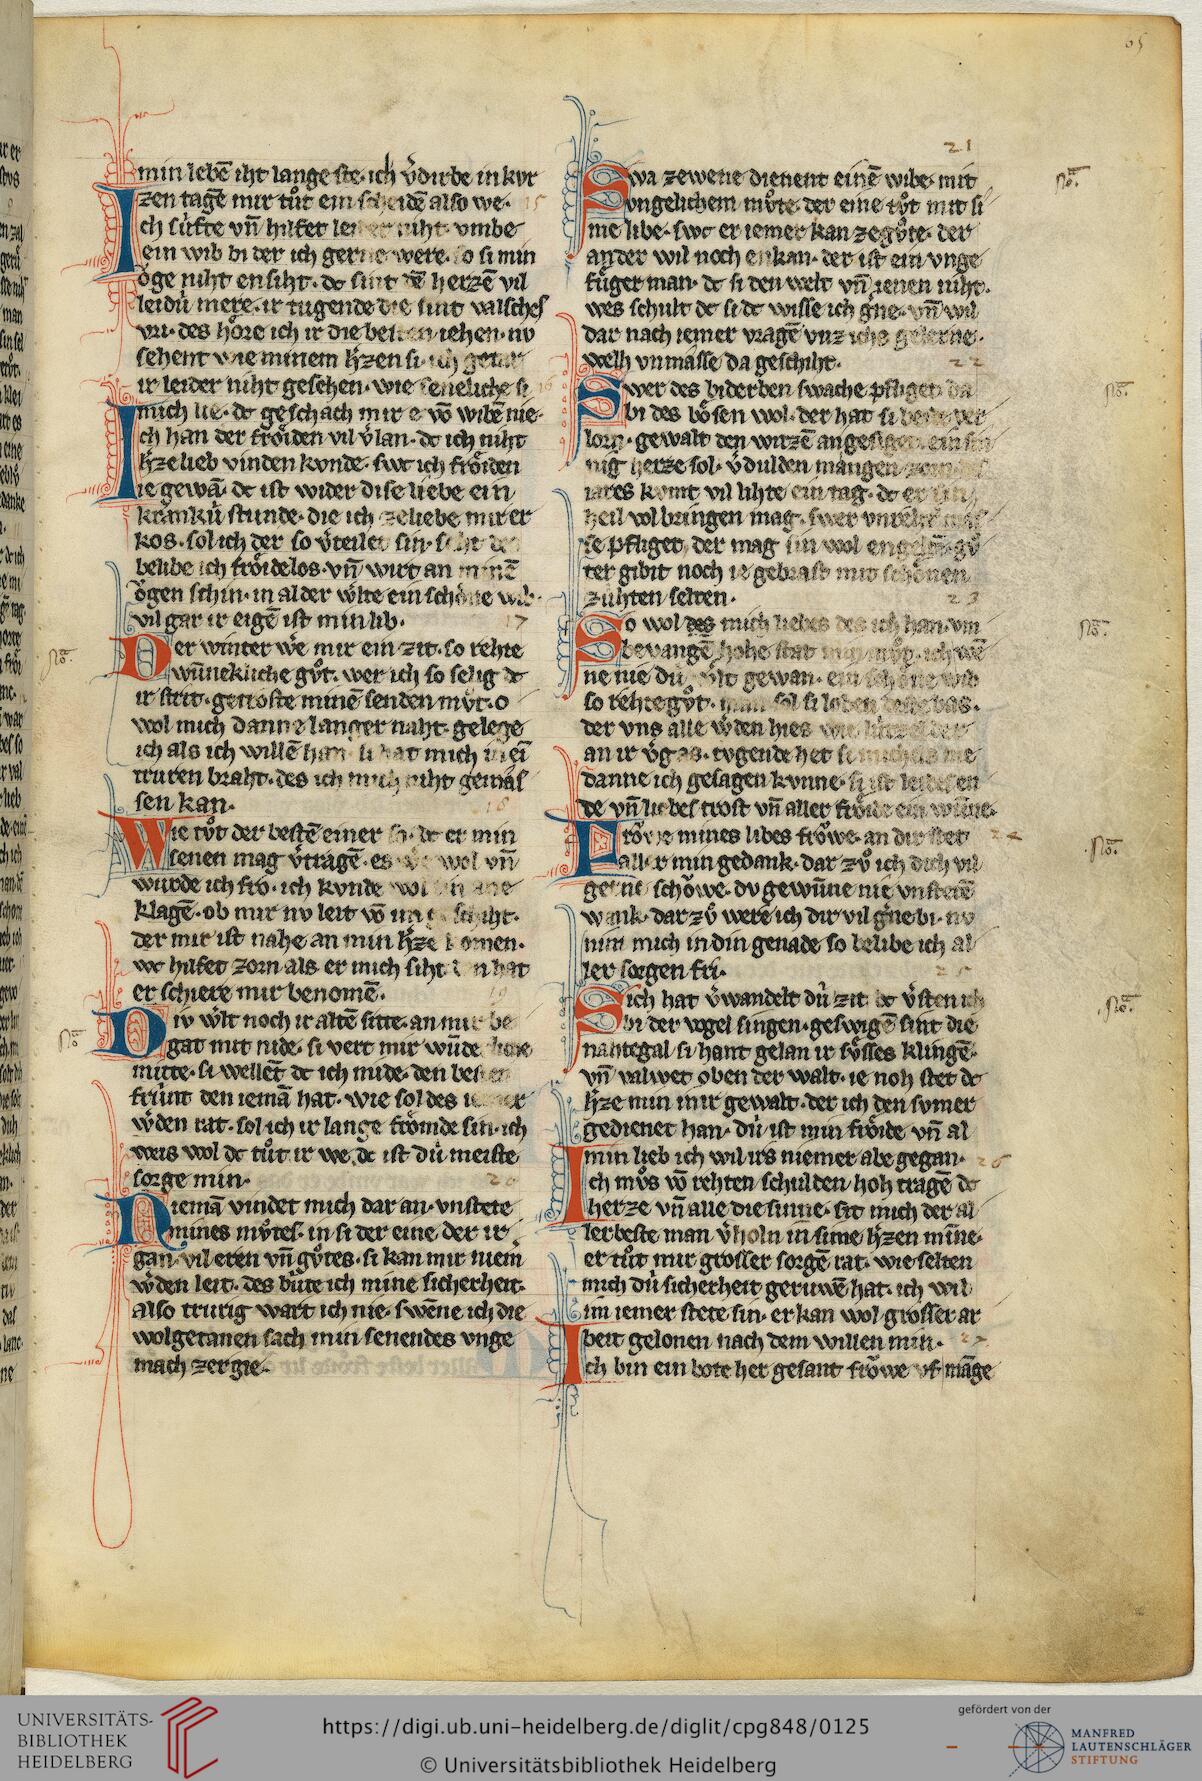 65
min lebē iht lange ste· ich v̾dirbe in kvr
zen tagē mir tůt ein scheidē also we· 15
Ich sùfte vn̄ hilfet leider niht· vmbe
ein wib bi der ich gerne were· so si min
ŏge niht ensiht· dc sint dē herzē vil
leidù mere· ir tugende die sint valsches
vri· des hŏre ich ir die besten iehen· nv
sehent wie minem h̾zen si· ich getar
ir leider niht gesehen· wie seneliche si 16
mich lie· dc geschach mir e vō wibē nie·
Ich han der frŏiden vil v̾lan· dc ich niht
h̾zelieb vinden kvnde· swc ich frŏiden
ie gewā· dc ist wider dise liebe ein
krankù stunde· die ich zeliebe mir er
kos· sol ich der so v̾teilet sin·
belibe ich frŏidelos· vn̄ wirt an minē
ŏgen schin· in al der w̾lte ein schŏne wib·
vil gar ir eigē ist min lib· 17
Der winter w̾e mir ein zit· so rehte
wūnekliche gůt· wer ich so selig dc
ir strit· getroste minē senden mv̊t· o
wol mich danne langer naht· gelege
ich als ich willē han· si hat mich in ei
truren braht· des ich mich niht gemas
sen kan· 18
Wie tůt der bestē einer so· dc er min
senen mag v̾tragē· es w̾e wol vn̄
wurde ich fro· ich kvnde wol
klagē· ob mir nv leit vō im geschiht·
der mir ist nahe an min h̾ze komen·
wc hilfet zorn als er mich siht den hat
er schiere mir benomē· 19
Div w̾lt noch ir altē sitte· an mir be
gat mit nide· si vert mir wūde
mitte· si wellēt dc ich mide· den besten
frùnt den iemā hat· wie sol des iemer
w̾den rat· sol ich ir lange frŏmde sin· ich
weis wol dc tůt ir we· dc ist dù meiste
sorge min· 20
Niemā vindet mich dar an· vnstete
mines mv̊tes· in si der eine· der ir
gan· vil eren vn̄ gv̊tes· si kan mir niem̾
w̾den leit· des bùte ich mine sicherheit·
also trurig wart ich nie· swēne ich die
wolgetanen sach min senendes vnge
mach zergie·
21
Swa zewene dienent einē wibe· mit
vngelichem mv̊te· der eine tůt mit si
nie libe· swc er iemer kan zegv̊te· der
ander wil noch enkan· der ist ein vnge
fùger man· dc si den welt vn̄ ienen niht·
wes schult dc si dc wisse ich g̾ne· vn̄ wil
dar nach iemer vragē vnz ichs gelerne·
welh vnmasse da geschiht· 22
Swer des biderben swache pfliget da
bi des bŏsen wol· der hat si beide ver
lorn· gewalt den witzē angesiget· ein sin
nig herze sol· v̾dulden mangen zorn· des
iares kvmt vil lihte ein tag· dc er sin
heil volbringen mag· swer vnrehter mas
se pfliget, der mag sin wol engelten· gv̊
ter gibit noch ie gebrast mit schŏnen
zùhten selten· 23
So wol des mich liebes des ich han· vm
bevangē hohe stat min mv̊t· ich wē
ne nie dù w̾lt gewan· ein schŏne wib
so rehte gv̊t· man sol si loben deste bas·
der vns alle w̾den hies wie lùtzel der
an ir v̾gas· tvgende het si michels me
danne ich gesagen kvnne· si ist leides en
de vn̄ liebes trost vn̄ aller frŏide ein wūne·
Frŏwe mines libes frŏwe· an dir stet 24
aller min gedank· dar zv̊ ich dich vil
gerne schŏwe· dv gewūne nie vnstetē
wank· dar zv̊ were ich dir vil g̾ne bi· nv
nim mich in din genade so belibe ich al
ler sorgen fri· 25
Sich hat v̾wandelt dù zit· dc v̾sten ich
bi der vogel singen· geswigē sint die
nahtegal si hant gelan ir sŭsses klingē·
vn̄ valwet oben der walt· ie noh stet dc
h̾ze min in ir gewalt· der ich den svmer
gedienet han· dù ist min frŏide vn̄ al
min lieb ich wil irs niemer abe gegan· 26
Ich mv̊s vō rehten schulden hoh tragē dc
herze vn̄ alle die sinne· sit mich der al
lerbeste man v̾holn in sime h̾zen mīne·
er tůt mir grosser sorgē rat· wie selten
mich dù sicherheit geruwē hat· ich wil
im iemer stete sin· er kan wol grosser ar
beit gelonen nach dem willen min· 27
Ich bin ein bote her gesant frŏwe vf māge
UNIVERSITÄTS-
BIBLIOTHEK
HEIDELBERG
https://digi.ub.uni-heidelberg.de/diglit/cpg848/0125
© Universitätsbibliothek Heidelberg
gefördert von der
MANFRED
LAUTENSCHLÄGER
STIFTUNG